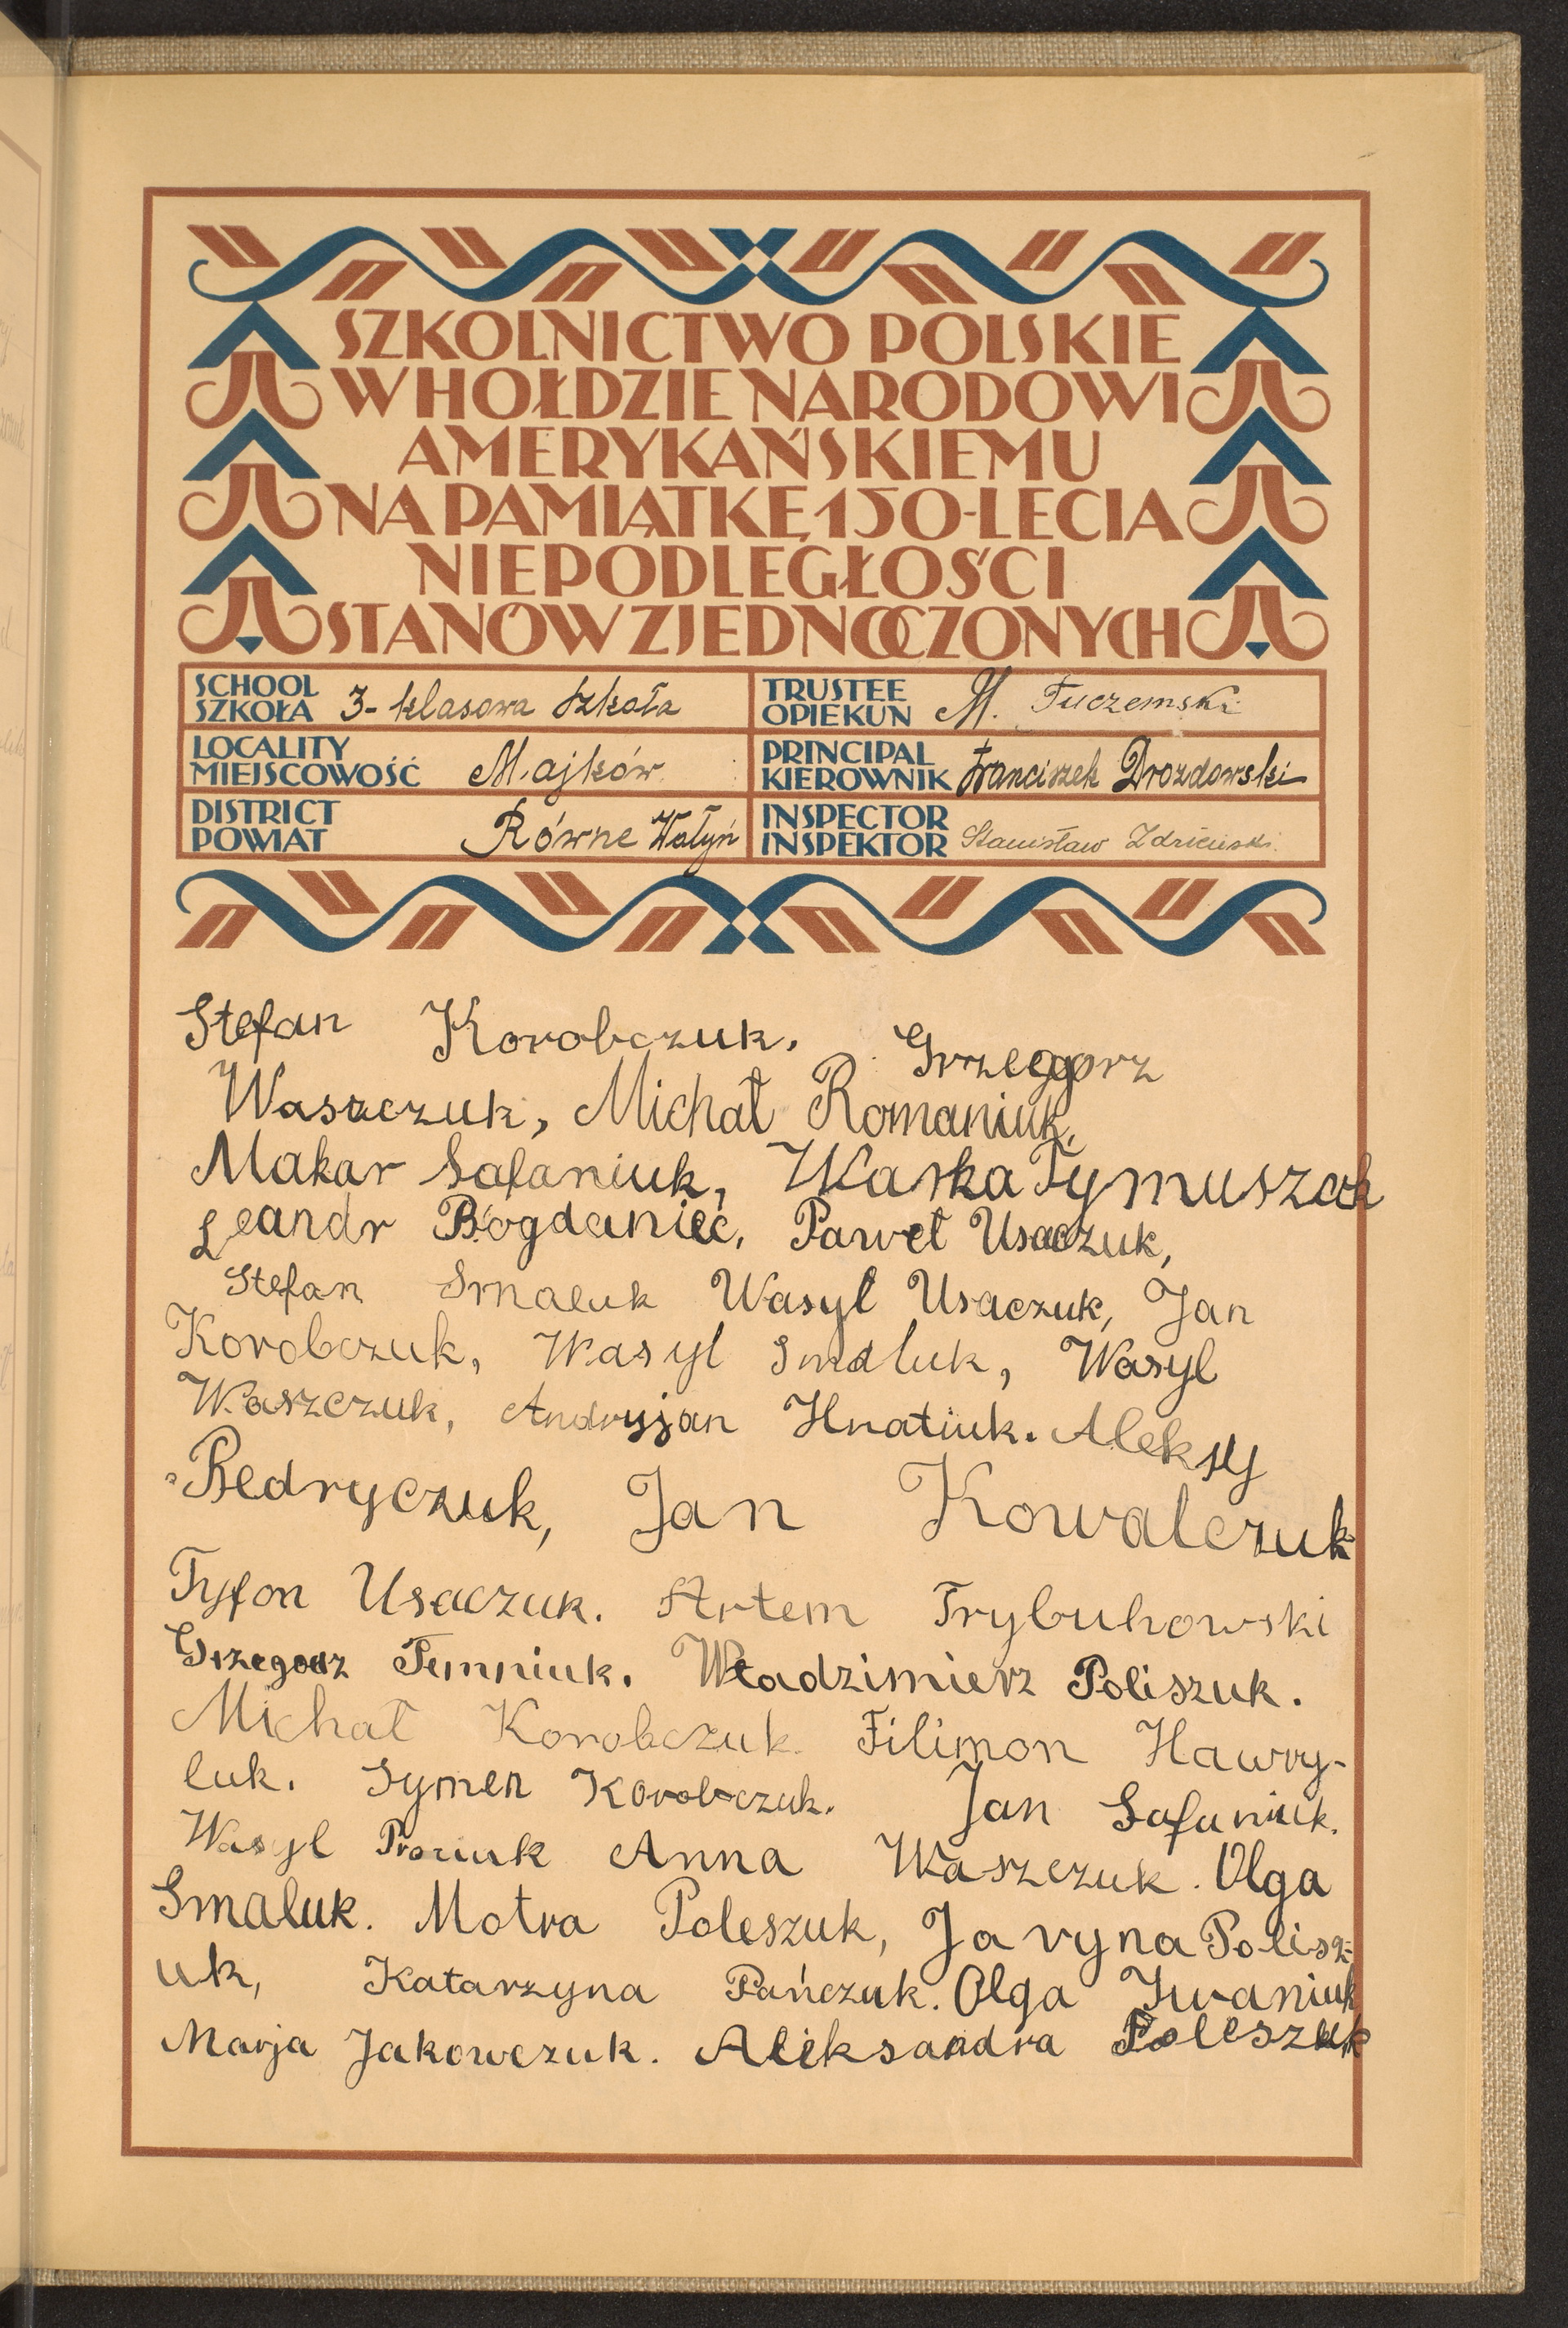 SZKOLNICTWO POLSKIE
W HOŁDZIE NARODOWI
AMERYKAŃSKIEMU
NA PAMIĄTKĘ 150-LECIA
NIEPODLEGŁOŚCI
STANÓW ZJEDNOCZONYCH
SCHOOL
SZKOŁA 3-klasowa Szkoła
TRUSTEE
OPIEKUN M. Tuczemski
LOCALITY
MIEJSCOWOŚĆ Majków
PRINCIPAL
KIEROWNIK Franciszek Drozdowski
DISTRICT
POWIAT Równe Wołyń
INSPECTOR
INSPEKTOR Stanisław
Stefan Korobczuk. Grzegorz
Waszczuk, Michał Romaniuk,
Makar Safaniuk, Waska Tymuszak
Leandr Bogdaniec, Paweł Usaczuk,
Stefan Smaluk Wasyl Usaczuk, Jan
Korobczuk, Wasyl Smaluk, Wasyl
Waszczuk, Andryjan Hnatiuk. Aleksy
Bedryczuk, Jan Kowalczuk
Tyfon Usaczuk. Artem Trybuhowski
Grzegorz Tumniuk. Władzimierz Poliszuk.
Michał Korobczuk. Filimon Hawry-
luk. Symen Korobczuk. Jan Safaniuk.
Wasyl Anna Waszczuk. Olga
Smaluk. Motra Poleszuk, Javyna Polisz-
uk, Katarzyna Pańczuk. Olga Iwaniuk
Marja Jakowczuk. Aleksandra Poleszuk